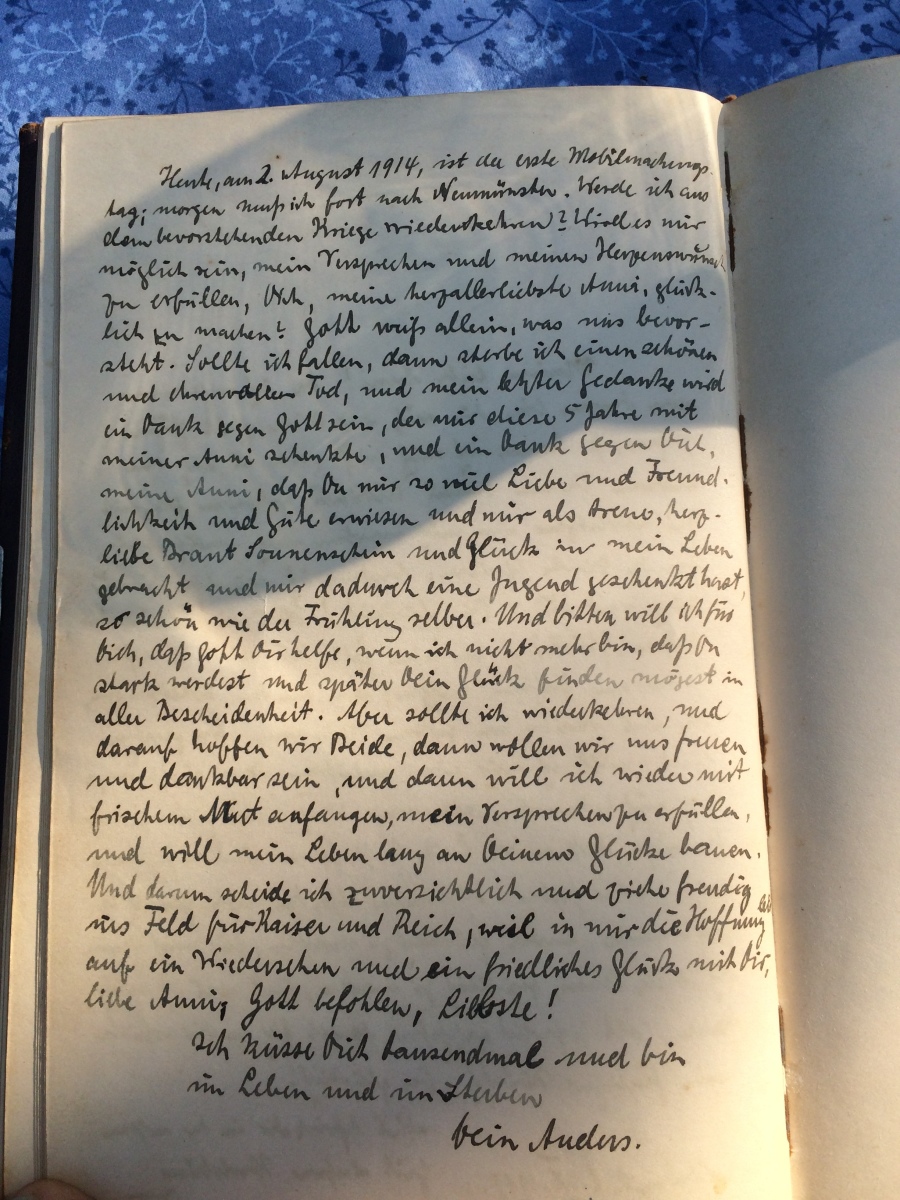 Heute, am 2. August 1914, ist der erste Mobilmachungs-
tag; morgen muß ich fort nach Neumünster. Werde ich aus
dem bevorstehenden Kriege wiederkehren? Wird es mir
möglich sein, mein Versprechen und meinen Herzenswunsch
zu erfüllen, Dich, meine herzallerliebste Anni, glück-
lich zu machen? Gott weiß allein, was uns bevor-
steht. Sollte ich fallen, dann sterbe ich einen schönen
und ehrenvollen Tod, und mein letzter Gedanke wird
ein Dank gegen Gott sein, der mir diese 5 Jahre mit
meiner Anni schenkte, und ein Dank gegen Dich,
meine Anni, daß Du mir so viel Liebe und Freund-
lichkeit und Güte erwiesen und mir als treue, herz-
liebe Braut Sonnenschein und Glück in mein Leben
gebracht und mir dadurch eine Jugend geschenkt hast,
so schön wie der Frühling selber. Und bitten will ich für
Dich, daß Gott Dir helfe, wenn ich nicht mehr bin, daß Du
stark werdest und später Dein Glück finden mögest in
aller Bescheidenheit. Aber sollte ich wiederkehren, und
darauf hoffen wir Beide, dann wollen wir uns freuen
und dankbar sein, und dann will ich wieder mit
frischem Mut anfangen, mein Versprechen zu erfüllen,
und will mein Leben lang an Deinem Glücke bauen.
Und darum scheide ich zuversichtlich und ziehe freudig
ins Feld für Kaiser und Reich, weil in mir die Hoffnung
auf ein Wiedersehen und ein friedliches Glück mit Dir,
liebe Anni; Gott befohlen, Liebste!
Ich küsse Dich tausendmal und bin
im Leben und im Sterben
Dein Anders.